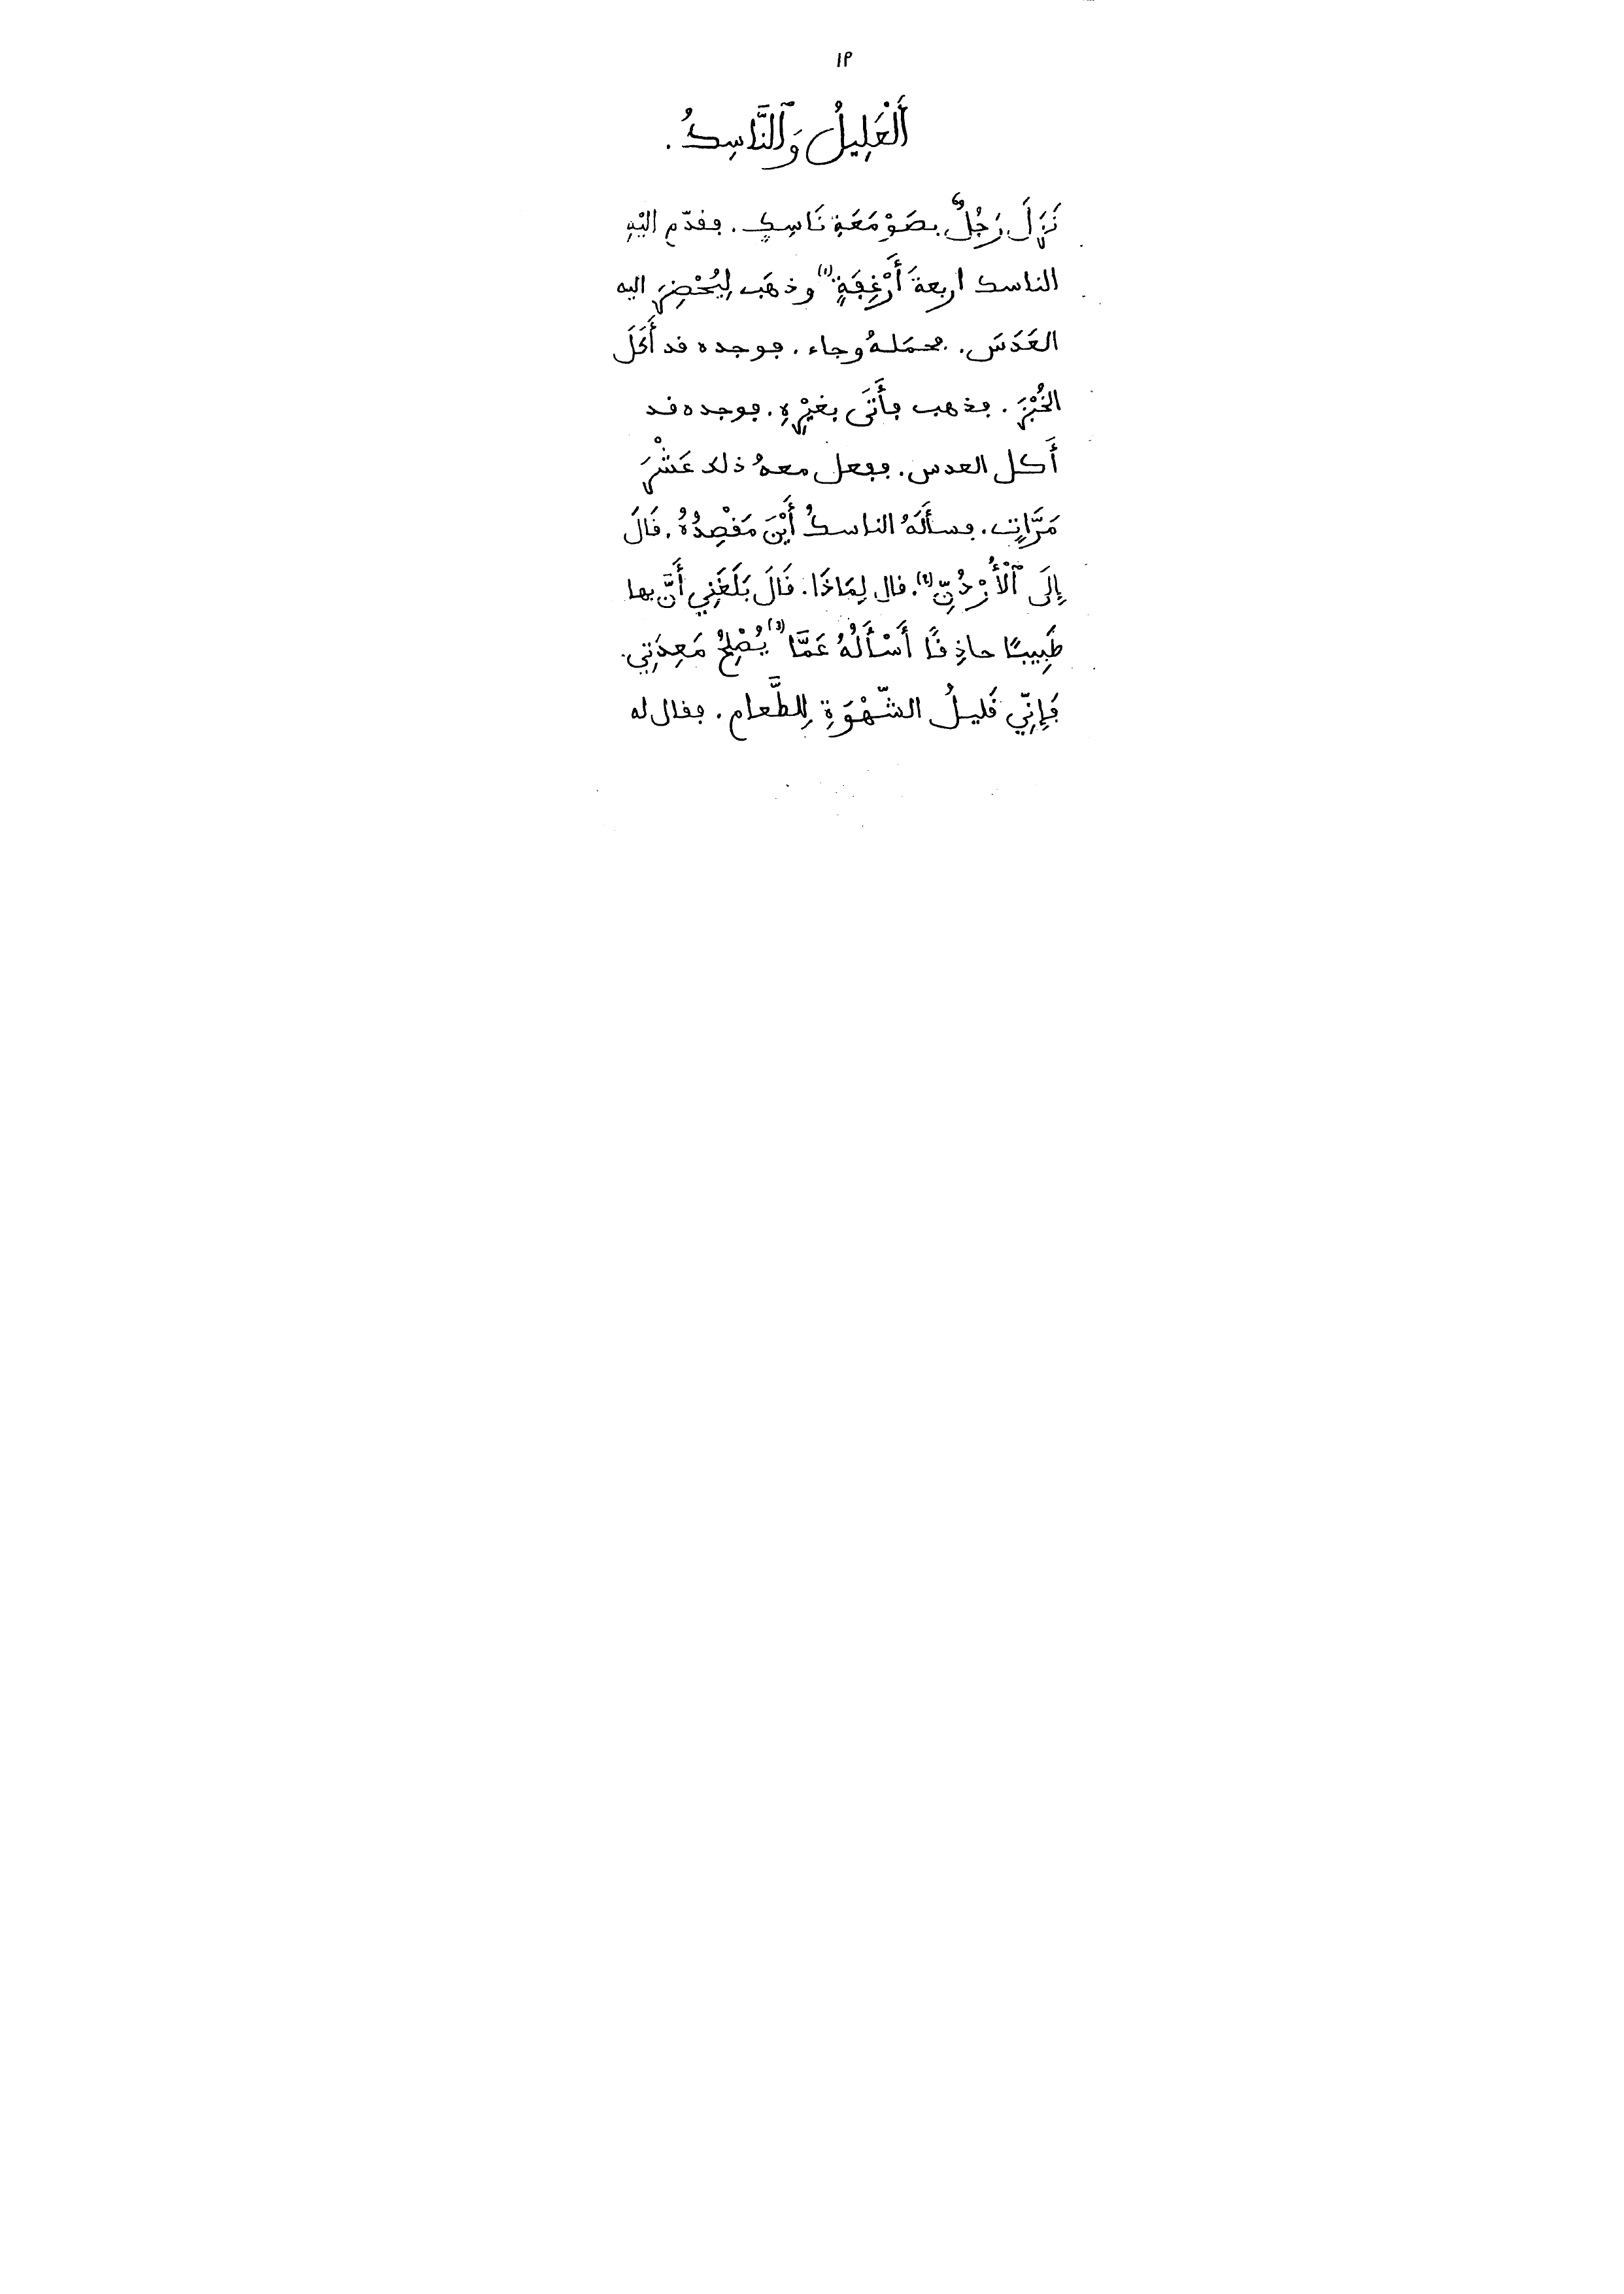 ١٩
أَلْعَلِيلُ وَٱلنَّاسِكُ.
نَزَلَ رَجُلٌ بِصَوْمَعَةِ نَاسِكٍ. فقدّم اليْهِ
الناسك اربعةَ أَرْغِفَةٍ (1) وذهَب لِيُحْضِرَ اليه
العَدَسَ. فحمَلهُ وجاء. فوجده قد أَكَلَ
الخُبْزَ. فذهب فأَتَى بغيْرِهِ. فوجده قد
أَكل العدس. ففعل معهُ ذلك عَشْرَ
مَرَّاتٍ. فسأَلَهُ الناسكُ أَيْنَ مَقْصِدُهُ. قَالَ
إِلَى ٱلْأُرْدُنِّ (2). قال لِمَاذَا. قَالَ بَلَغَنِي أَنَّ بها
طَبِيبًا حاذِقًا أَسْأَلُهُ عَمَّا (3) يُصْلِحُ مَعِدَتِي.
فَإِنِّي قَليلُ الشّهْوَةِ لِلطَّعام. فقال له